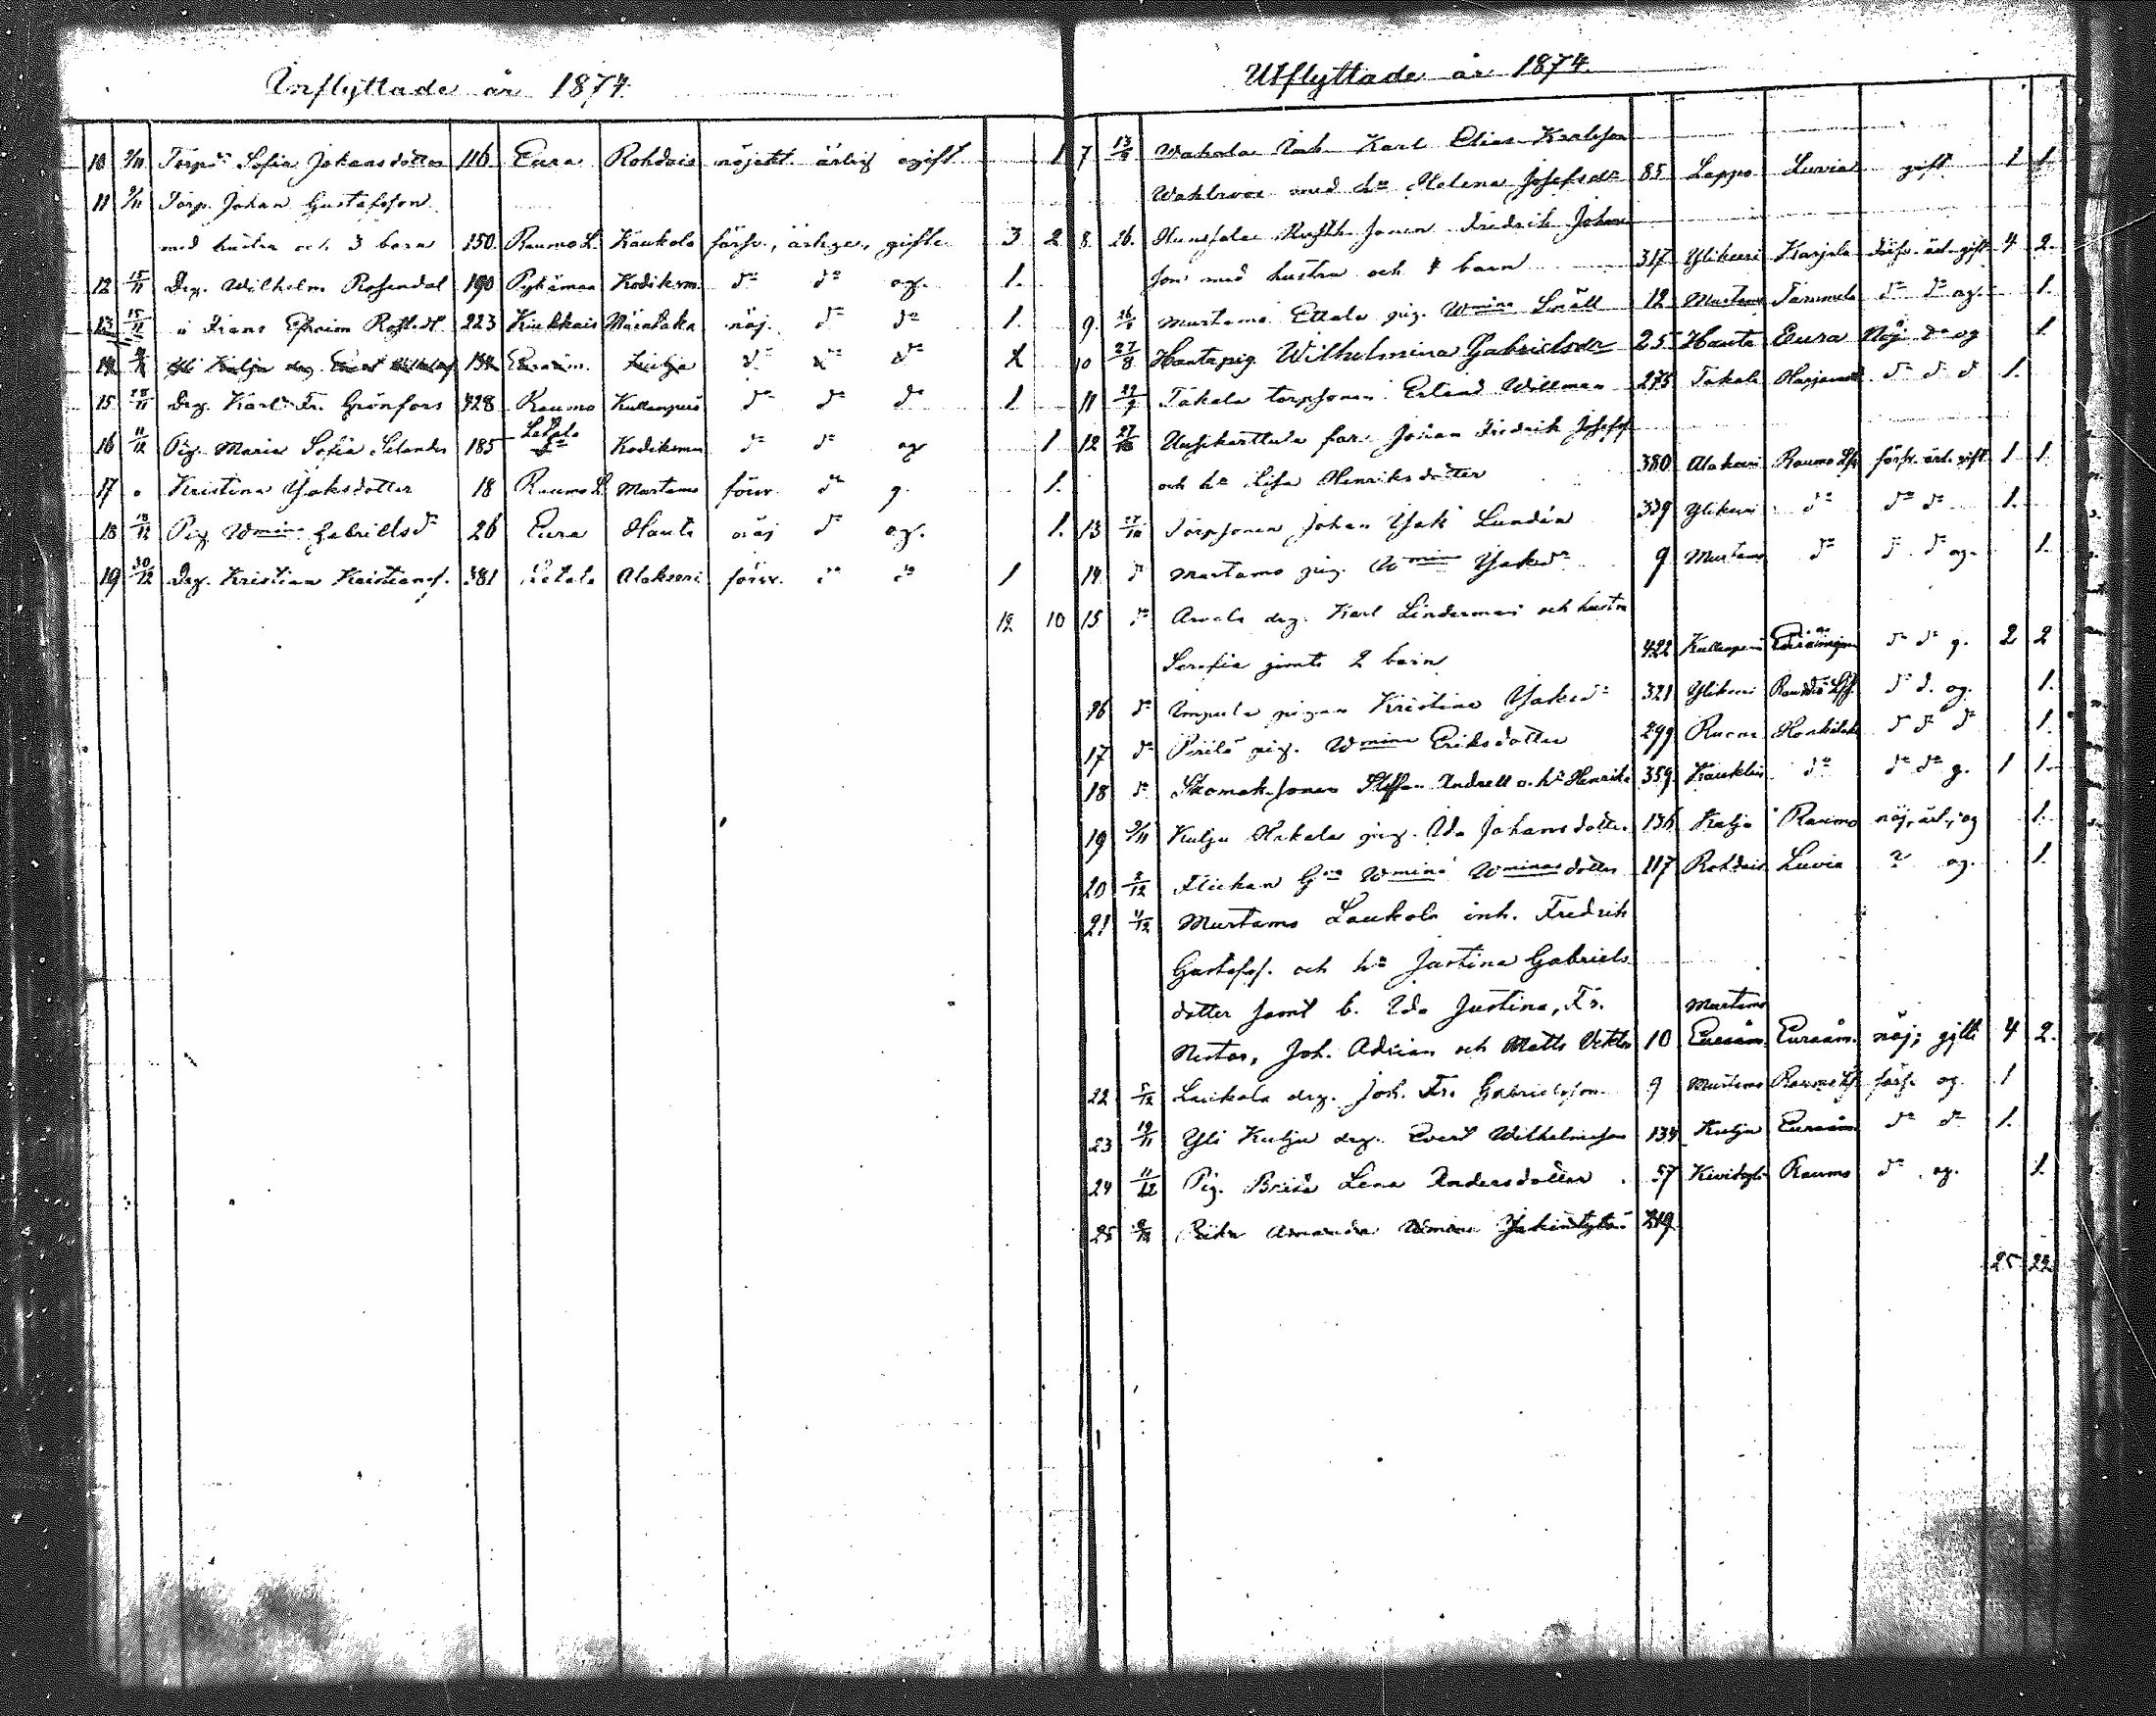 Inflyttade år 1874.
10 9/11 Torpd:r Sofia Johansdotter 116. Eura Rohdais nöjakt. ärlig ogift 1
11 9/11 Torp. Johan Gustafsson
med hustru och 3 barn 150. Raumo L. Kaukola försv., ärliga, gifte 3 2
12 15/11 Drg. Wilhelm Rosendal 190 Pyhämaa Kodiksm. d:o d:o og. 1.
13 15/11 d Frans Efraim 223 Kiukkais Määtaka nöj. d:o d:o 1.
14 Yli Kulju drg. Evert 134 Euraåm. Kulja d:o d:o d:o
15 Drg. Karl Fr. Grönfors 428 Raumo Kullanperä d:o d:o d:o 1
16 11/12 Pig. Maria Sofia Selander 185 Letala Kodiksma d:o d:o og 1
17 Kristina Isaksdotter 18 Raumo L Martamo försv. d:o g. 1.
18 18/12 Pig Wmina Gabrielsd:r 26 Eura Hauta nöj d:o og. 1.
19 30/12 Drg. Kristian Kristiansf. 381 Letala Alakeeri försv. d:o d:o 1
12 10
Utflyttade år 1874.
7 13/8 Wakola Inh. Karl Elias Karlsson
Wahlroos med h:u Helena Josefsd:r 85 Lappo Luvia gift 1 1
8. 26. Jonen Fredrik Johans
son med hustru och 4 barn 317 Ylikeeri Karjala försv. ärl. gift 4 2.
9. Murtamo Ettala pig. Wmina Snäll 12 Murtamo d:o d:o og. 1.
10 27/8 Hauta pig. Wilhelmina Gabrielsd:r 25 Hauta Eura Nöj d:o og 1.
11 Takala torpsonen Erland Willman 275 Takala d:o d:o d:o 1.
12 Johan Fredrik Josefsf.
och h:u Lisa Henriksdotter 380 Alakeeri Raumo Ls. försv. ärl. gift 1 1.
13 27/10 Torpsonen Johan Isak Lundén 339 Ylikeeri d:o d:o d:o 1.
14 d:o Martamo pig. Wmina Isaksd:r 9 Murtamo d:o d:o d:o og. 1.
15 d:o Arvela drg. Karl Linderman och hustru
Serafia jemte 2 barn 422 Kullanperä d:o d:o g. 2 2
16 d:o Impula pigan Kristina Isaksd:r 321 Ylikeeri Raumo Ls. d:o d. og. 1.
17 d:o Priilä pig. Wmina Eriksdotter 299 Ruona Honkilaht d:o d:o d:o 1.
18 d:o Skomak. sonen Steffan Andrell o. h:u Henrika 359 Kauklais d:o d:o d:o g. 1 1.
19 9/11 Kulju Hakala pig. Ida Johansdotter 136 Kulja Raumo nöj, ärl., og 1.
20 2/12 Flickan Wmina Wminasdotter 117 Rohdais Luvia og. 1.
21 4/12 Murtamo Laukola inh. Fredrik
Gustafsf. och h:u Justina Gabriels
dotter samt b. Ida Justina, Fr.
Nestor, Joh. Adrian och Matts Viktor 10 Murtamo Euraåm. Euraåm. nöj; gifte 4 2.
22 5/12 Laukola drg. Joh. Fr. Gabrielsson 9 Murtamo Raumo Ls försv. og. 1
23 19/11 Yli Kulju drg. Evert Wilhelmsson 134 Kulju Euraåm d:o d:o 1.
24 11/12 Pig. Brita Lena Andersdotter 57 Kivikylä Raumo d:o og. 1.
25 Amanda Wmina 219
25 22